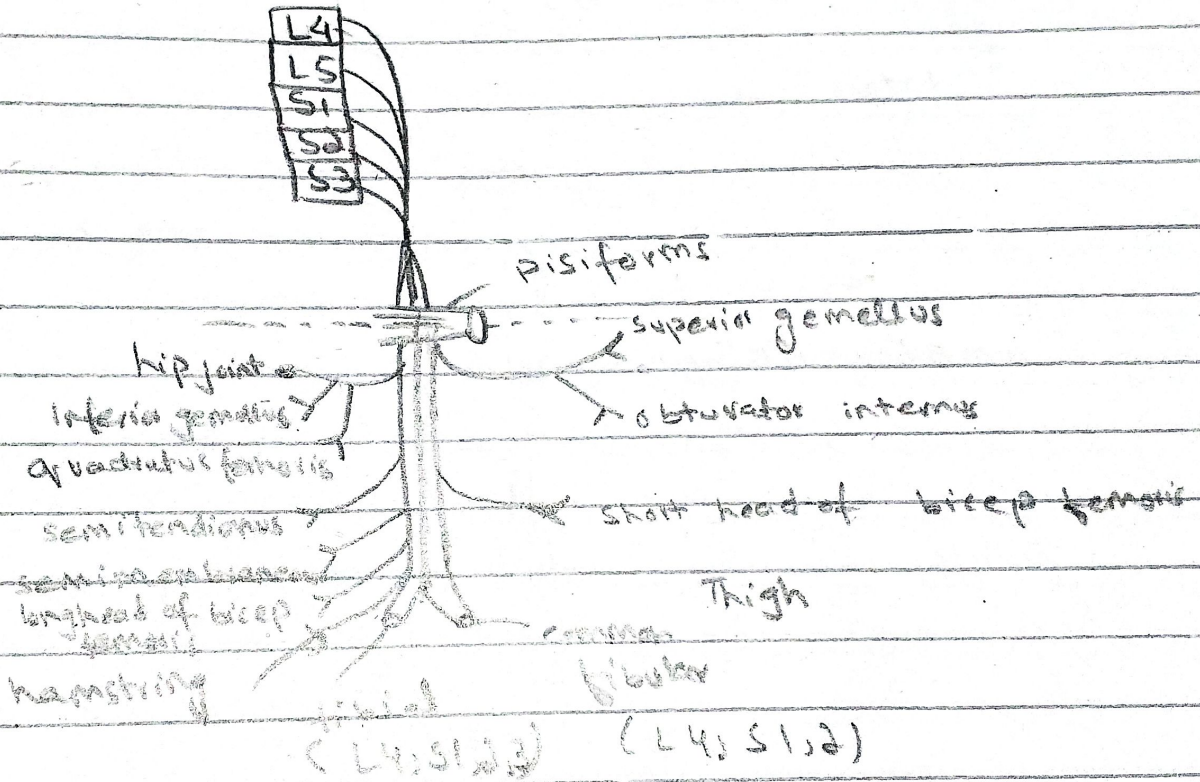 L4
L5
S1
S2
S3
pisiforms
superior gemellus
hip joint
Inferior gemellus
obturator internus
quadratus femoris
semitendionus
short head of bicep femoris
long head of bicep
femoris
Thigh
common
hamstring
fibular
tibial
(L4, S1,2)